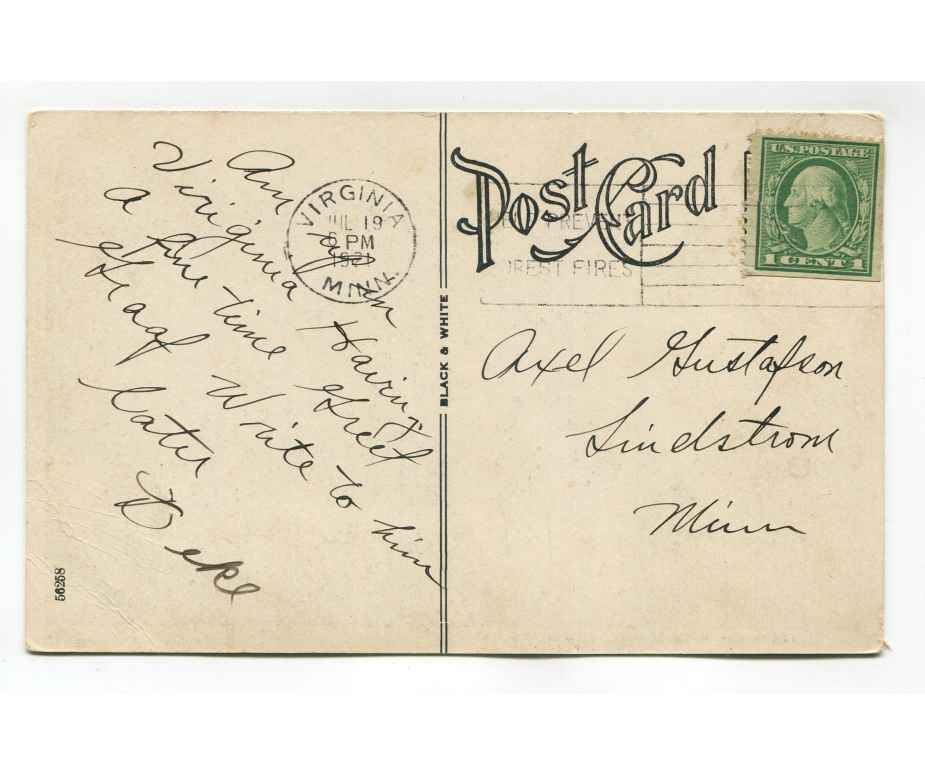 Am up in
Virginia Having
A fine time Greet
Staaf Write to him
later
Deke
VIRGINIA
JUL 19
6 PM
1921
MINN.
BLACK & WHITE
56258
Post Card
PREVENT
FOREST FIRES
U.S. POSTAGE
1 CENT 1
Axel Gustafson
Lindstrom
Minn